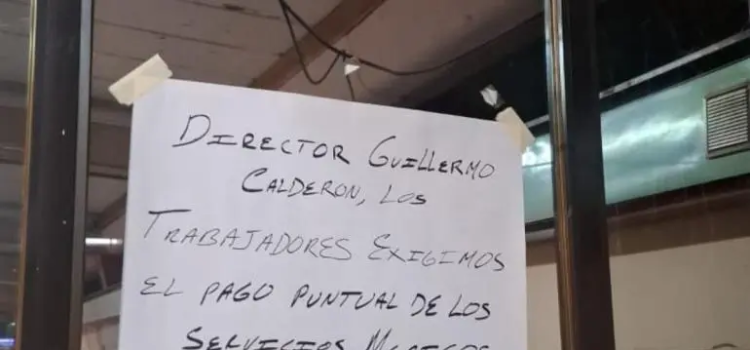 DIRECTOR GUILLERMO
CALDERON, LOS
TRABAJADORES EXIGIMOS
EL PAGO PUNTUAL DE LOS
SERVICIOS